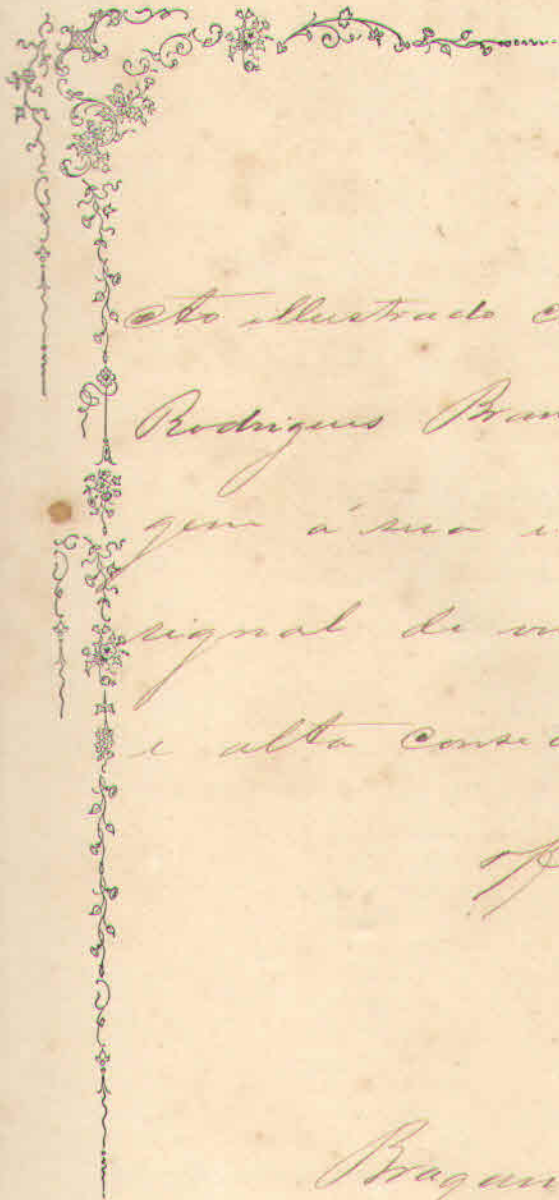 Ao illustrado c
Rodrigues Bran
gem á sua i
signal de vi
e alta consi
Bragan